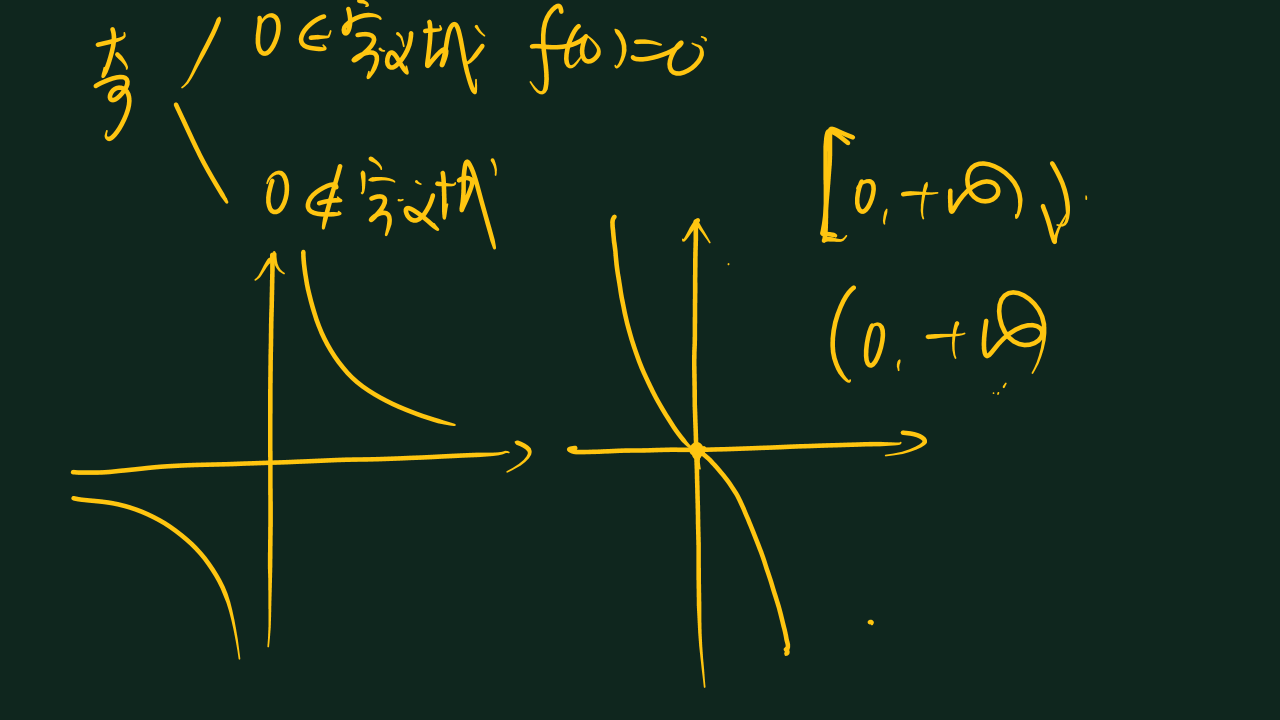 奇
0∈定义域 f(0)=0
0∉定义域
[0,+∞)↓
(0,+∞)